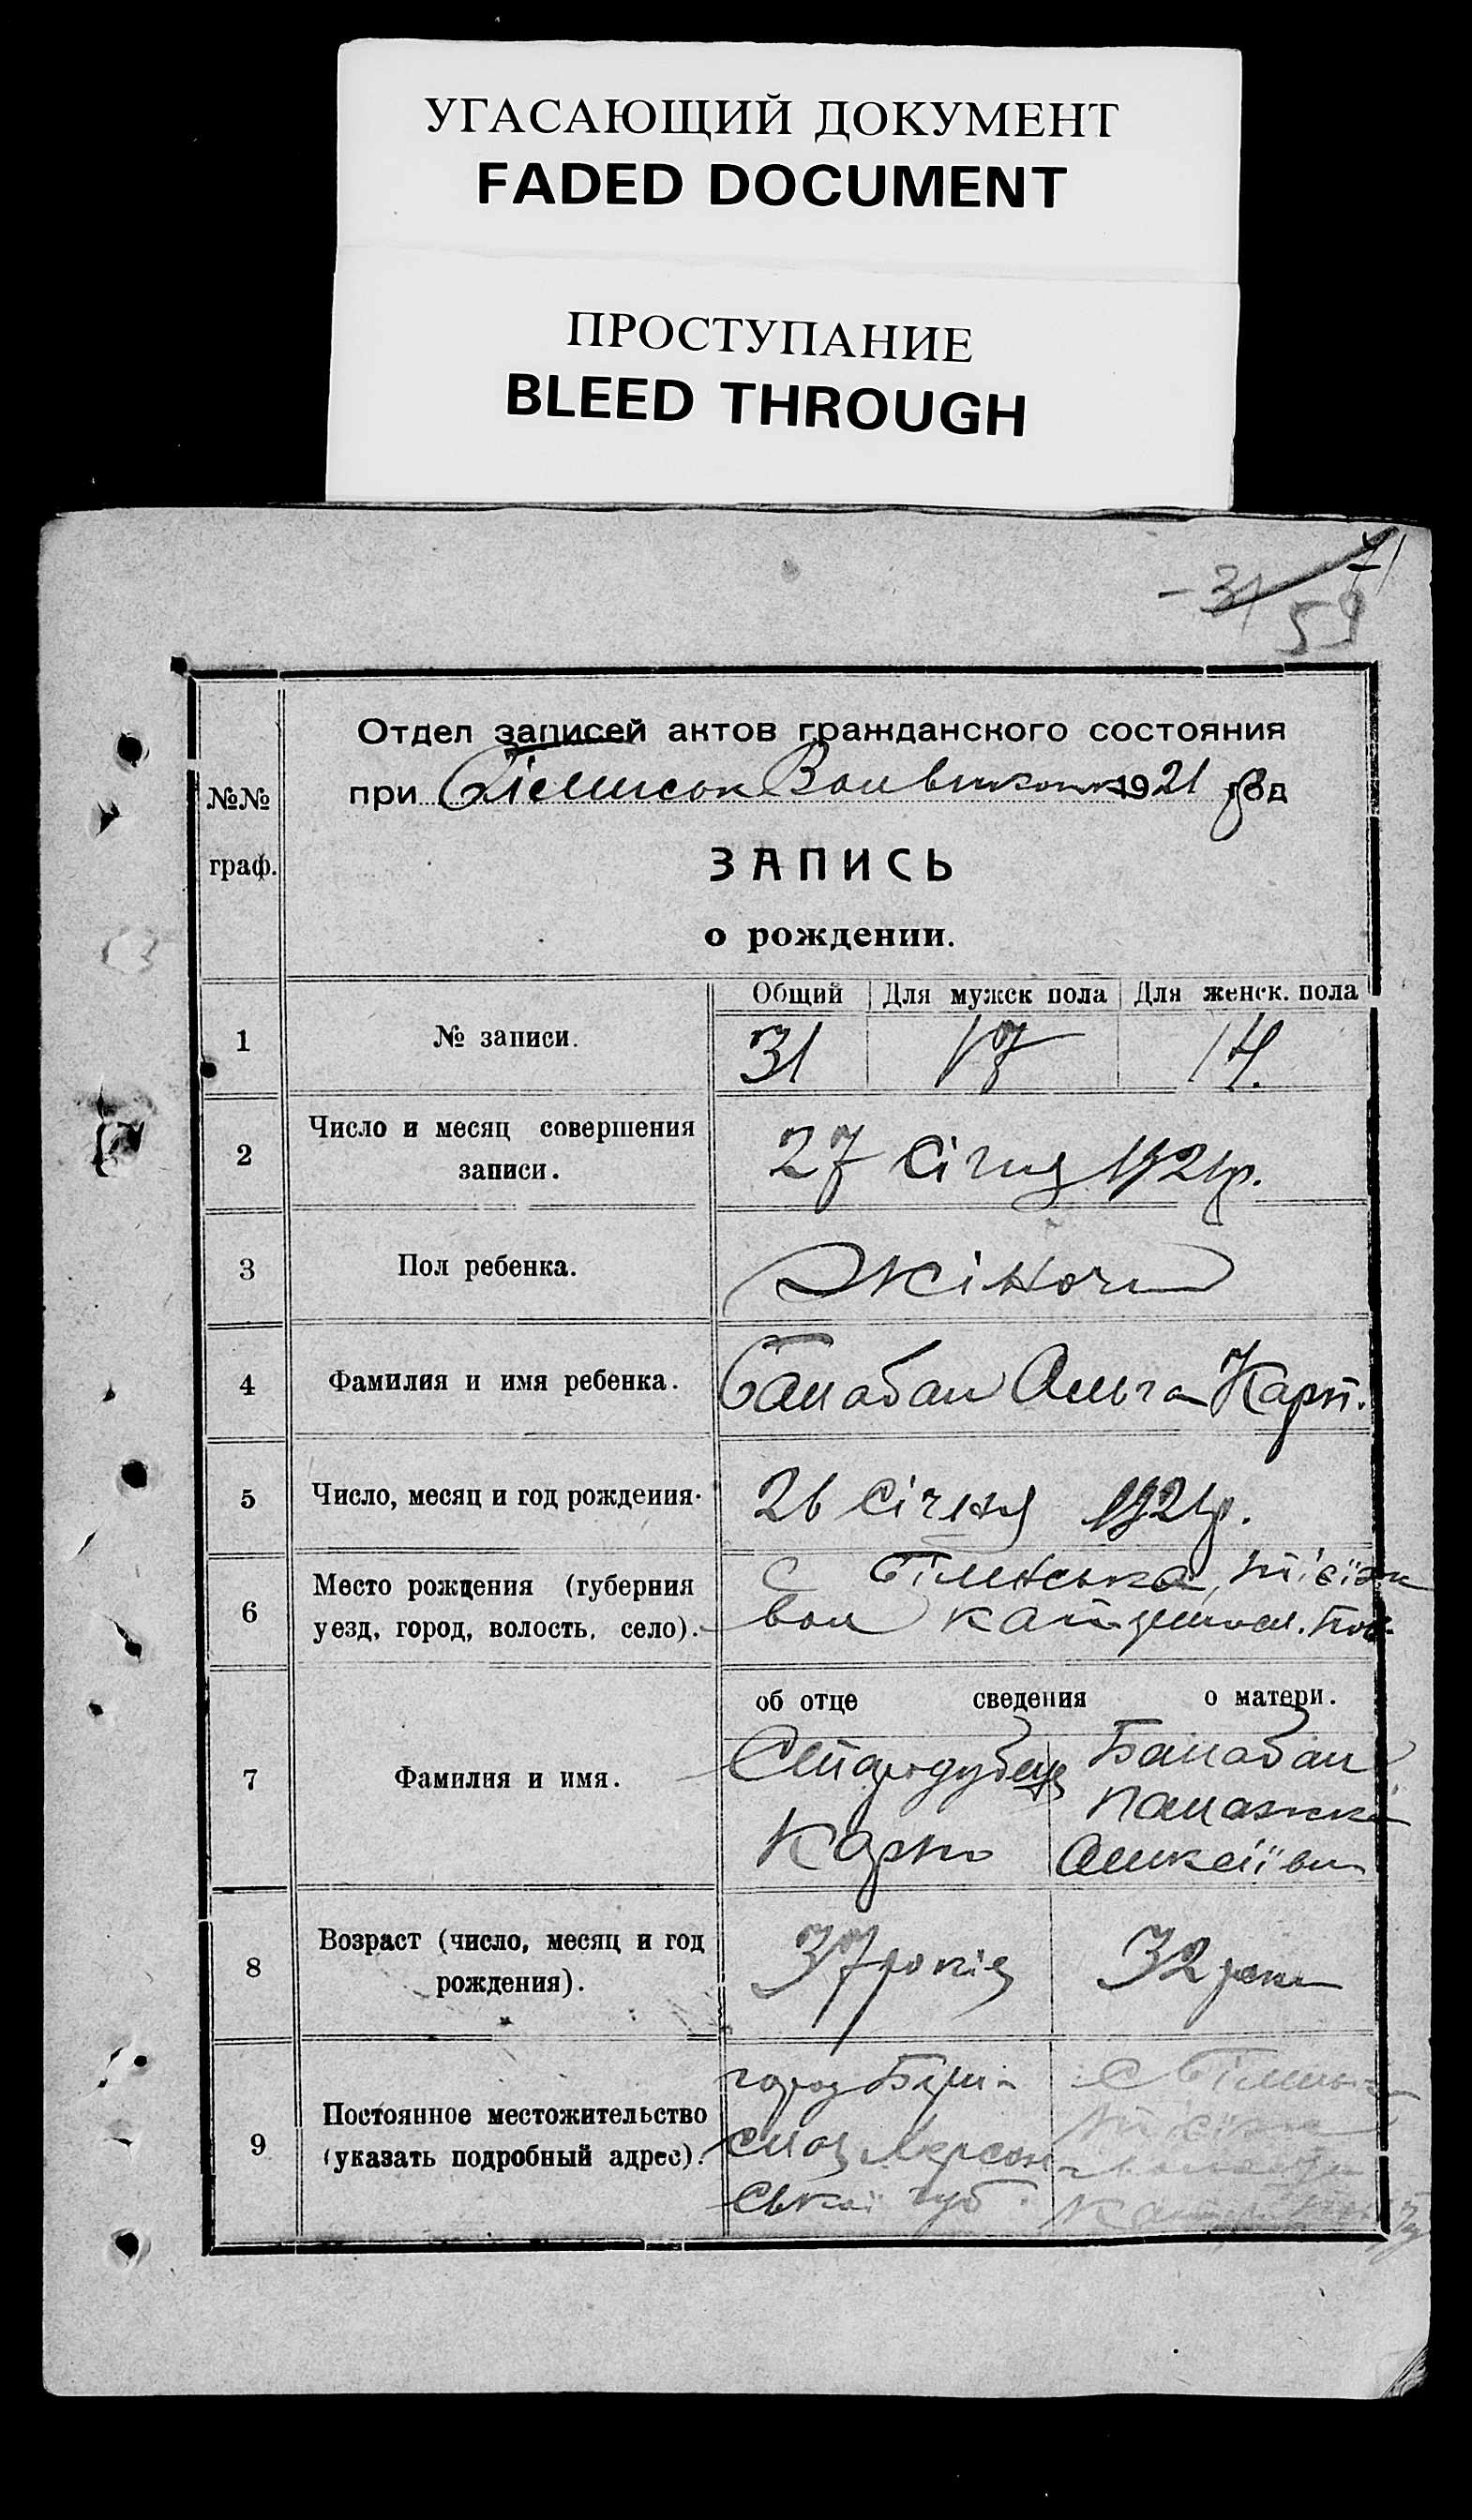 УГАСАЮЩИЙ ДОКУМЕНТ
FADED DOCUMENT
ПРОСТУПАНИЕ
BLEED THROUGH
31
59
Отдел записей актов гражданского состояния
при 1921 год
№№
граф.
ЗАПИСЬ
о рождении.
Общий Для мужск пола Для женск. пола
1 № записи. 31 17 14.
2 Число и месяц совершения
записи. 27 Січня 1921р.
3 Пол ребенка. Жіноч
4 Фамилия и имя ребенка. Балабан Ольга Карп.
5 Число, месяц и год рождения. 26 Січня 1921р.
6 Место рождения (губерния
уезд, город, волость, село). с
вол пов.
об отце сведения о матери.
7 Фамилия и имя. Стародубец Балабан
Карпо
8 Возраст (число, месяц и год
рождения). 37 років 32 роки
9 Постоянное местожительство
(указать подробный адрес). город с
Херсон
ської губ.